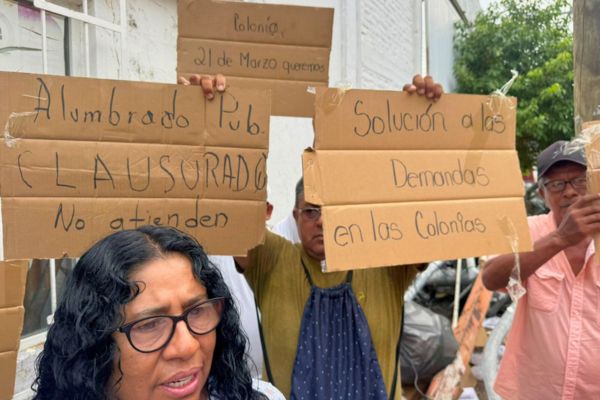 Colonia,
21 de Marzo queremos
Alumbrado Pub.
CLAUSURADO
No atienden
Solución a las
Demandas
en las Colonias